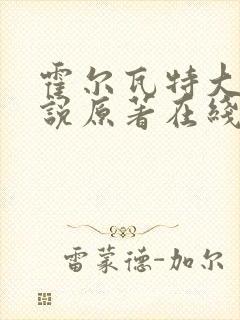 霍尔瓦特大
说原著在线
雷蒙德-加尔